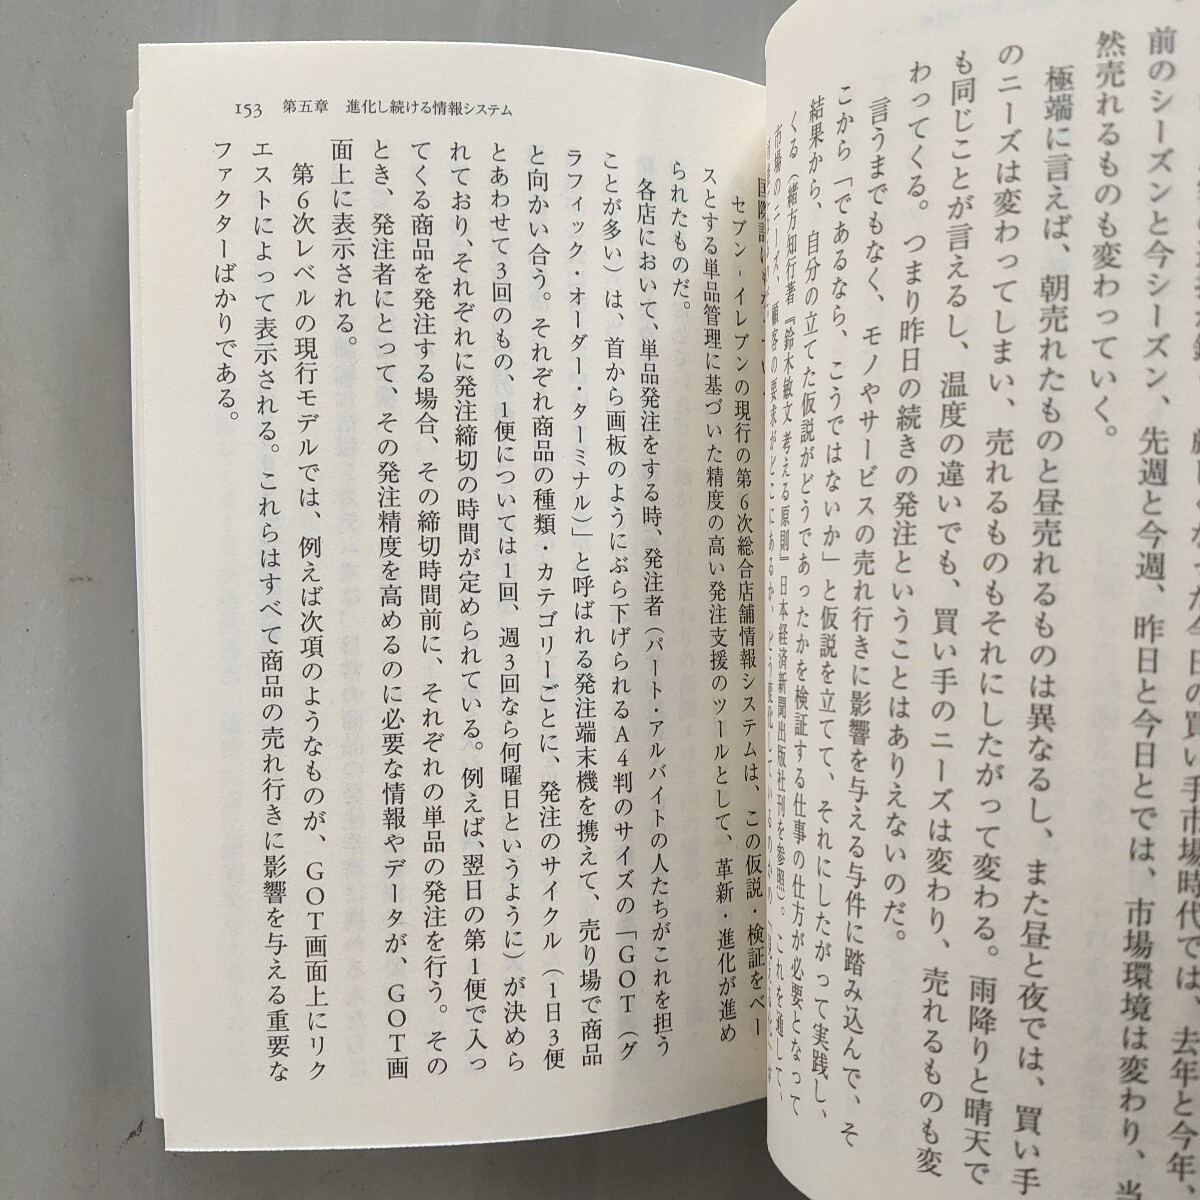 前のシーズンと今シーズン、先週と今週、昨日と今日とでは、市場環境は変わり、当
然売れるものも変わっていく。
極端に言えば、朝売れたものと昼売れるものは異なるし、また昼と夜では、買い手
のニーズは変わってしまい、売れるものもそれにしたがって変わる。雨降りと晴天で
も同じことが言えるし、温度の違いでも、買い手のニーズは変わり、売れるものも変
わってくる。つまり昨日の続きの発注ということはありえないのだ。
言うまでもなく、モノやサービスの売れ行きに影響を与える与件に踏み込んで、そ
こから「であるなら、こうではないか」と仮説を立てて、それにしたがって実践し、
結果から、自分の立てた仮説がどうであったかを検証する仕事の仕方が必要となって
くる（緒方知行著『鈴木敏文 考える原則』日本経済新聞出版社刊を参照）。これを通して、
市場のニーズ、顧客の要求がどこにあるか、どう変化しているのかの
153 第五章 進化し続ける情報システム
セブン‐イレブンの現行の第6次総合店舗情報システムは、この仮説・検証をベー
スとする単品管理に基づいた精度の高い発注支援のツールとして、革新・進化が進め
られたものだ。
各店において、単品発注をする時、発注者（パート・アルバイトの人たちがこれを担う
ことが多い）は、首から画板のようにぶら下げられるA4判のサイズの「GOT（グ
ラフィック・オーダー・ターミナル）」と呼ばれる発注端末機を携えて、売り場で商品
と向かい合う。それぞれ商品の種類・カテゴリーごとに、発注のサイクル（1日3便
とあわせて3回のもの、1便については1回、週3回なら何曜日というように）が決めら
れており、それぞれに発注締切の時間が定められている。例えば、翌日の第1便で入っ
てくる商品を発注する場合、その締切時間前に、それぞれの単品の発注を行う。その
とき、発注者にとって、その発注精度を高めるのに必要な情報やデータが、GOT画
面上に表示される。
第6次レベルの現行モデルでは、例えば次項のようなものが、GOT画面上にリク
エストによって表示される。これらはすべて商品の売れ行きに影響を与える重要な
ファクターばかりである。